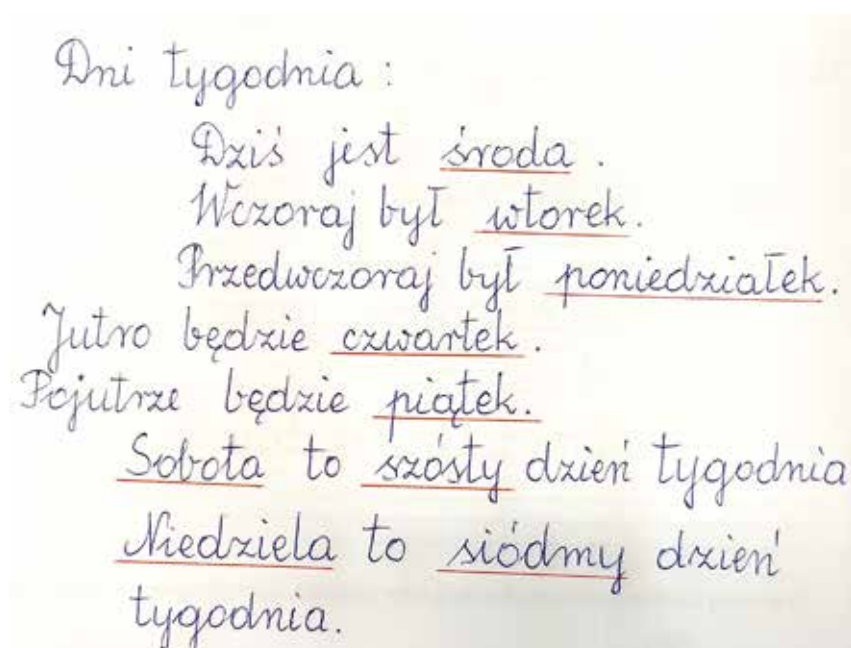 Dni tygodnia :
Dziś jest środa .
Wczoraj był wtorek.
Przedwczoraj był poniedziałek.
Jutro będzie czwartek.
Pojutrze będzie piątek.
Sobota to szósty dzień tygodnia
Niedziela to siódmy dzień
tygodnia.